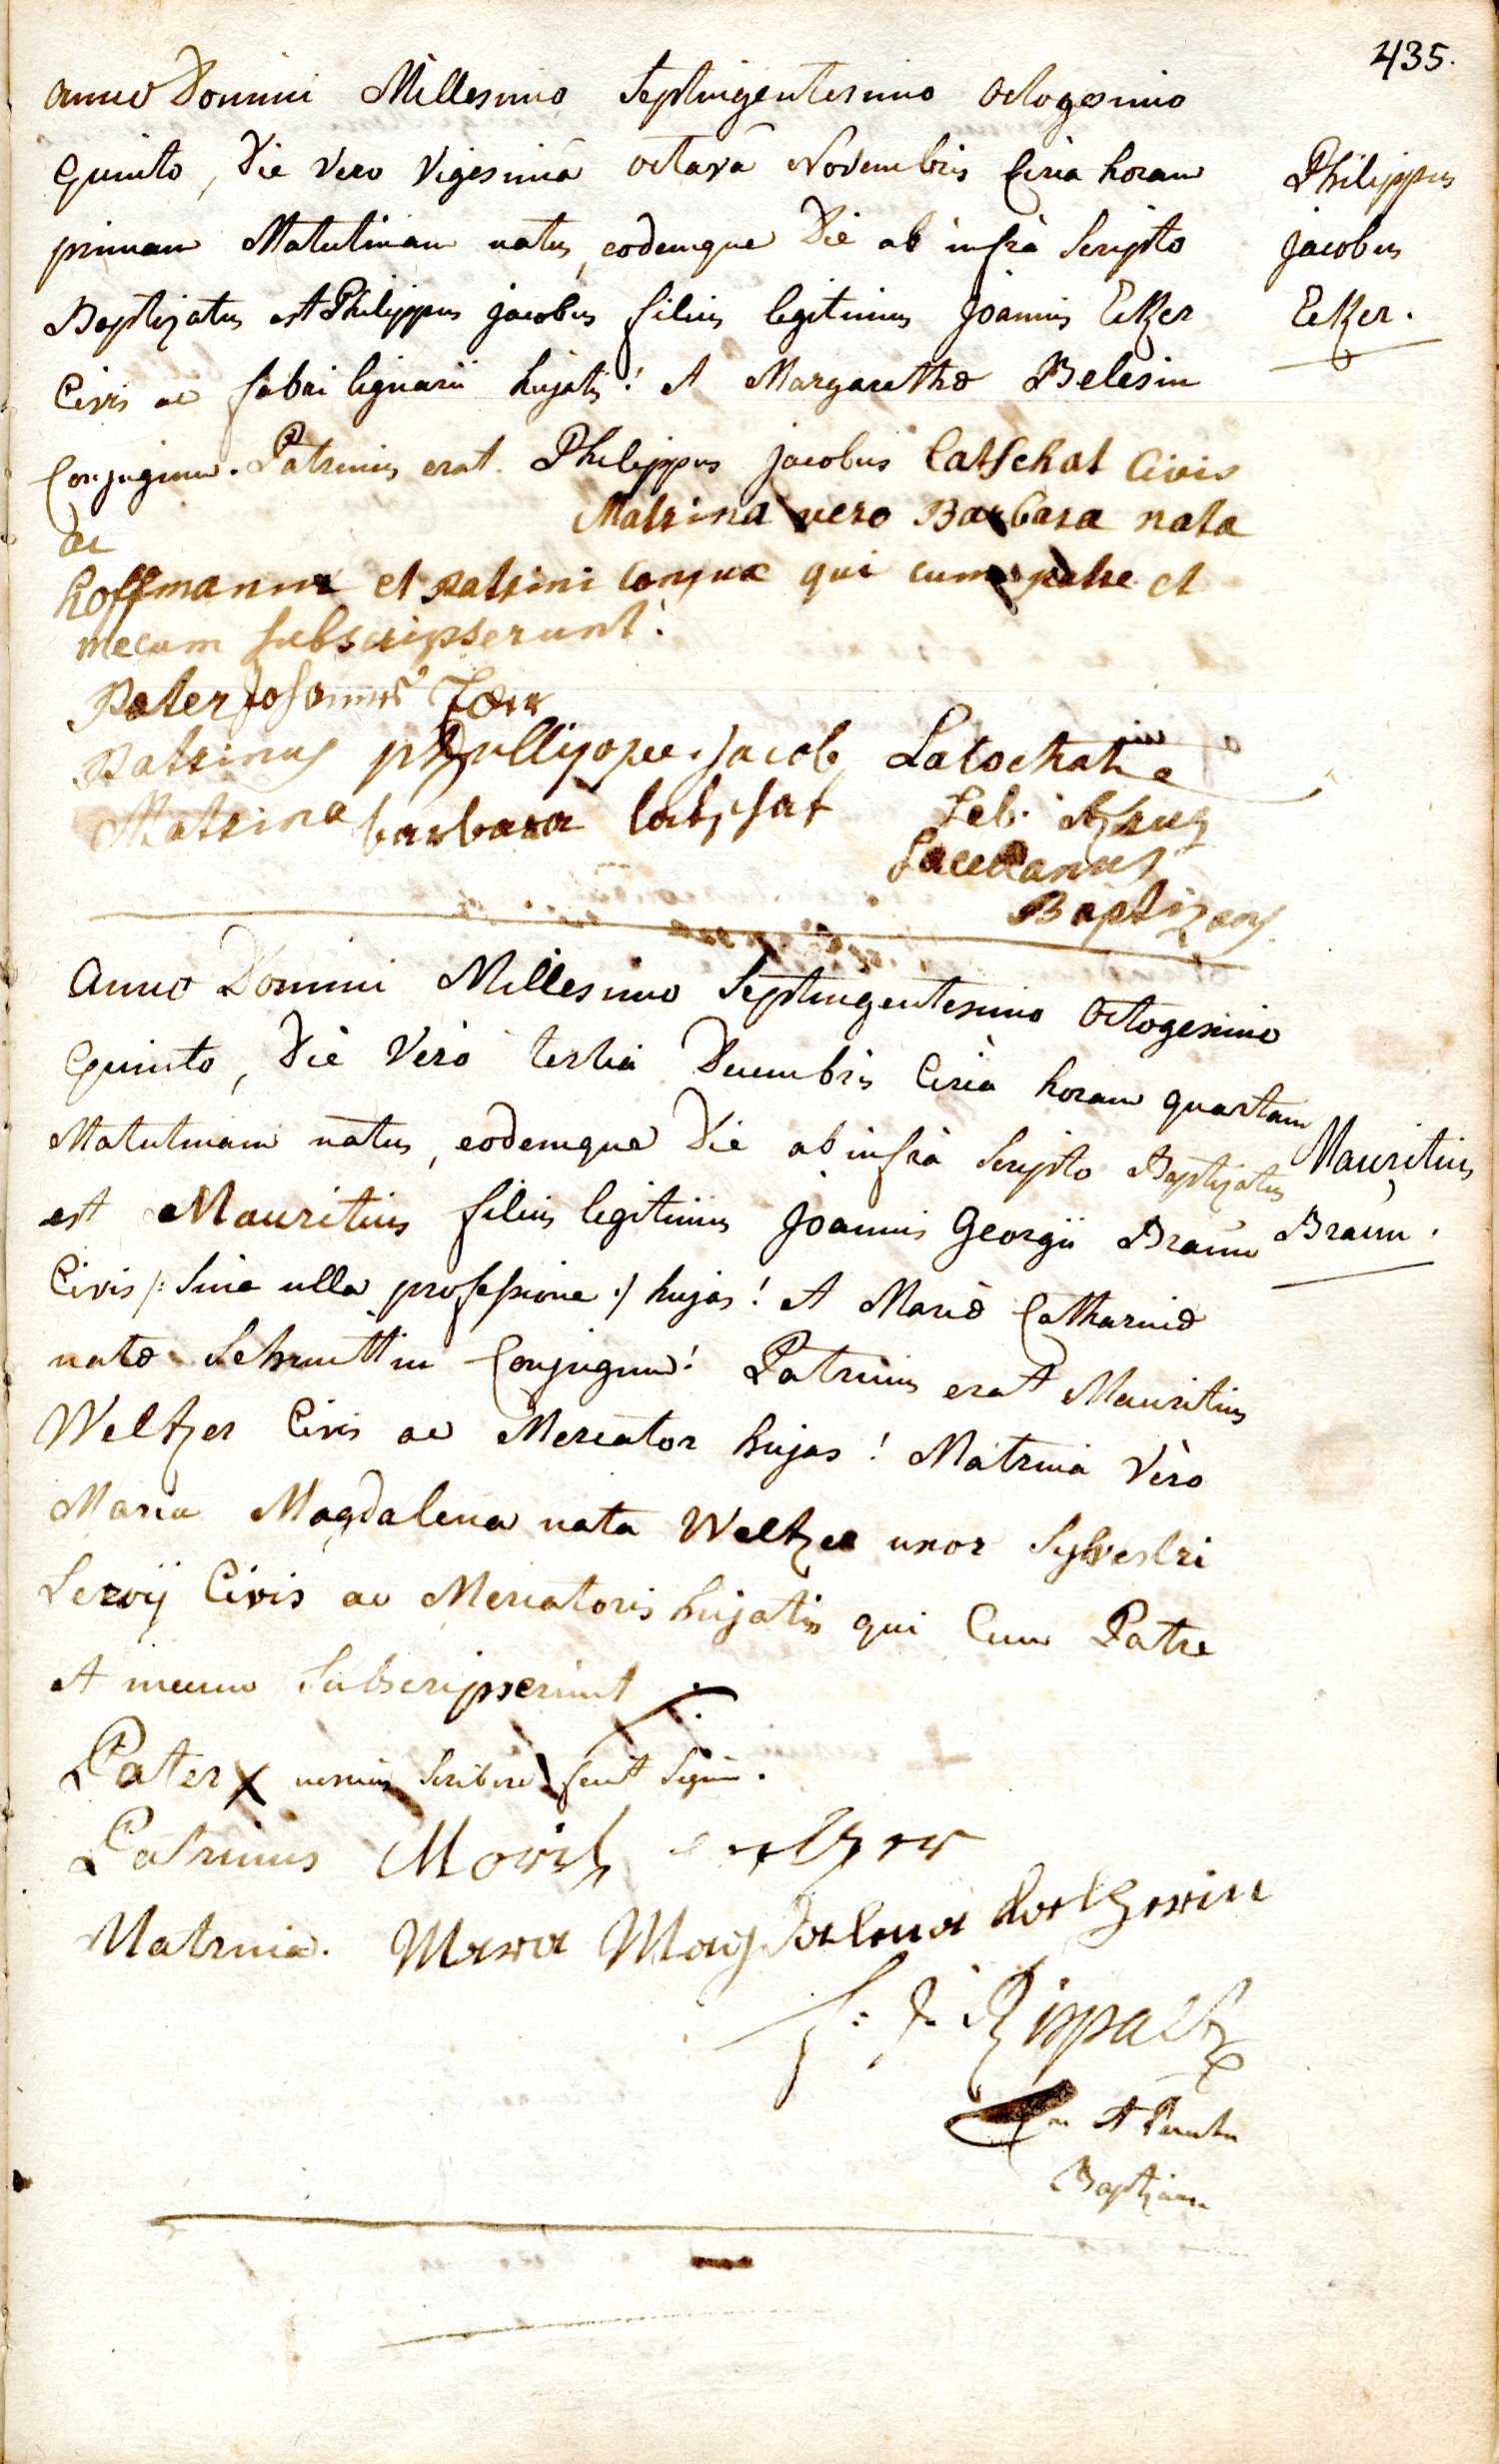 435.
Anno Domini Millesimo Septingentesimo Octogesimo
Quinto, Die Vero Vigesimâ octavâ Novembris Circa horam
primam Matutinam natus, eodemque Die ab infrà Scripto
Baptizatus est Philippus jacobus filius legitimus Joannis Etzer
Civis ac fabri lignarii hujatis! et Margarethæ Belesin
Conjugum. Patrinus erat. Philippus jacobus Catschat Civis
ac
Matrina vero Barbara nata
hoffmannin et patrini conjux qui cum patre et
mecum subscripserunt.
Philippus
Jacobus
Etzer.
Pater
Patrinus jacob Latschat
Matrina barbara latschat
Seb.
Sacellanus
Baptizans.
Anno Domini Millesimo Septingentesimo Octogesimo
Quinto, Die Vero tertia Decembris Circà horam quartam
Matutinam natus, eodemque Die ab infrà Scripto Baptizatus
est Mauritius filius legitimus Joannis Georgii Braun
Civis /: Sine ulla professione :/ hujas! et Mariæ Catharinæ
natæ Schmittin Conjugum! Patrinus erat Mauritius
Weltzer Civis ac Mercator hujas! Matrina Vero
Maria Magdalena nata Weltzer uxor Sylvestri
Servij Civis ac Mercatoris hujatis qui Cum Patre
et mecum Subscripserunt.
Mauritius
Braun.
Pater X nescius Scribere fecit Signum.
Patrinus Moritz
Matrina. Maria Magdalena
Baptizans